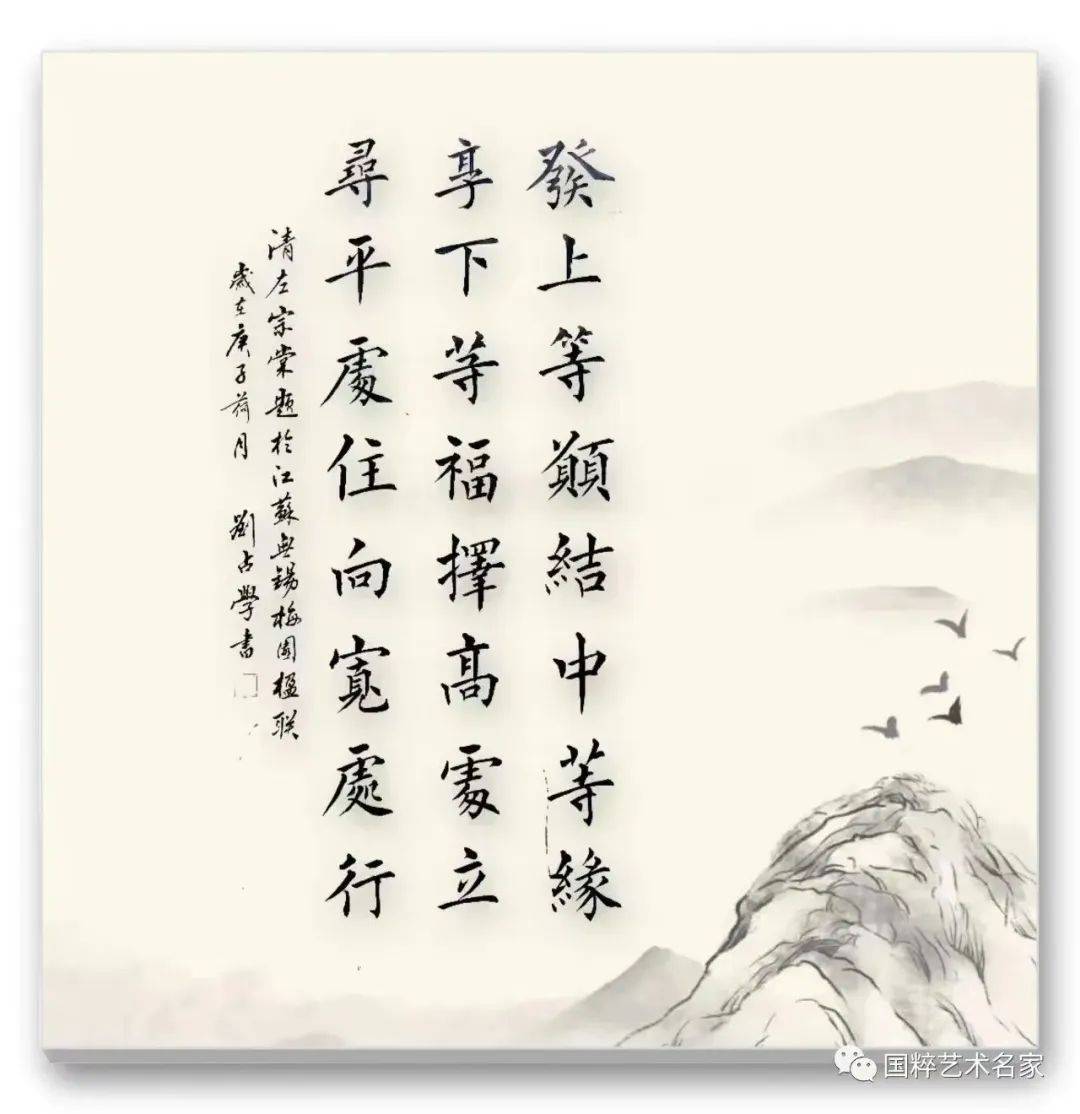 發上等願結中等緣
享下等福擇高處立
尋平處住向寬處行
清左宗棠題於江蘇無錫梅園楹联
歲在庚子荷月 劉占學書
国粹艺术名家